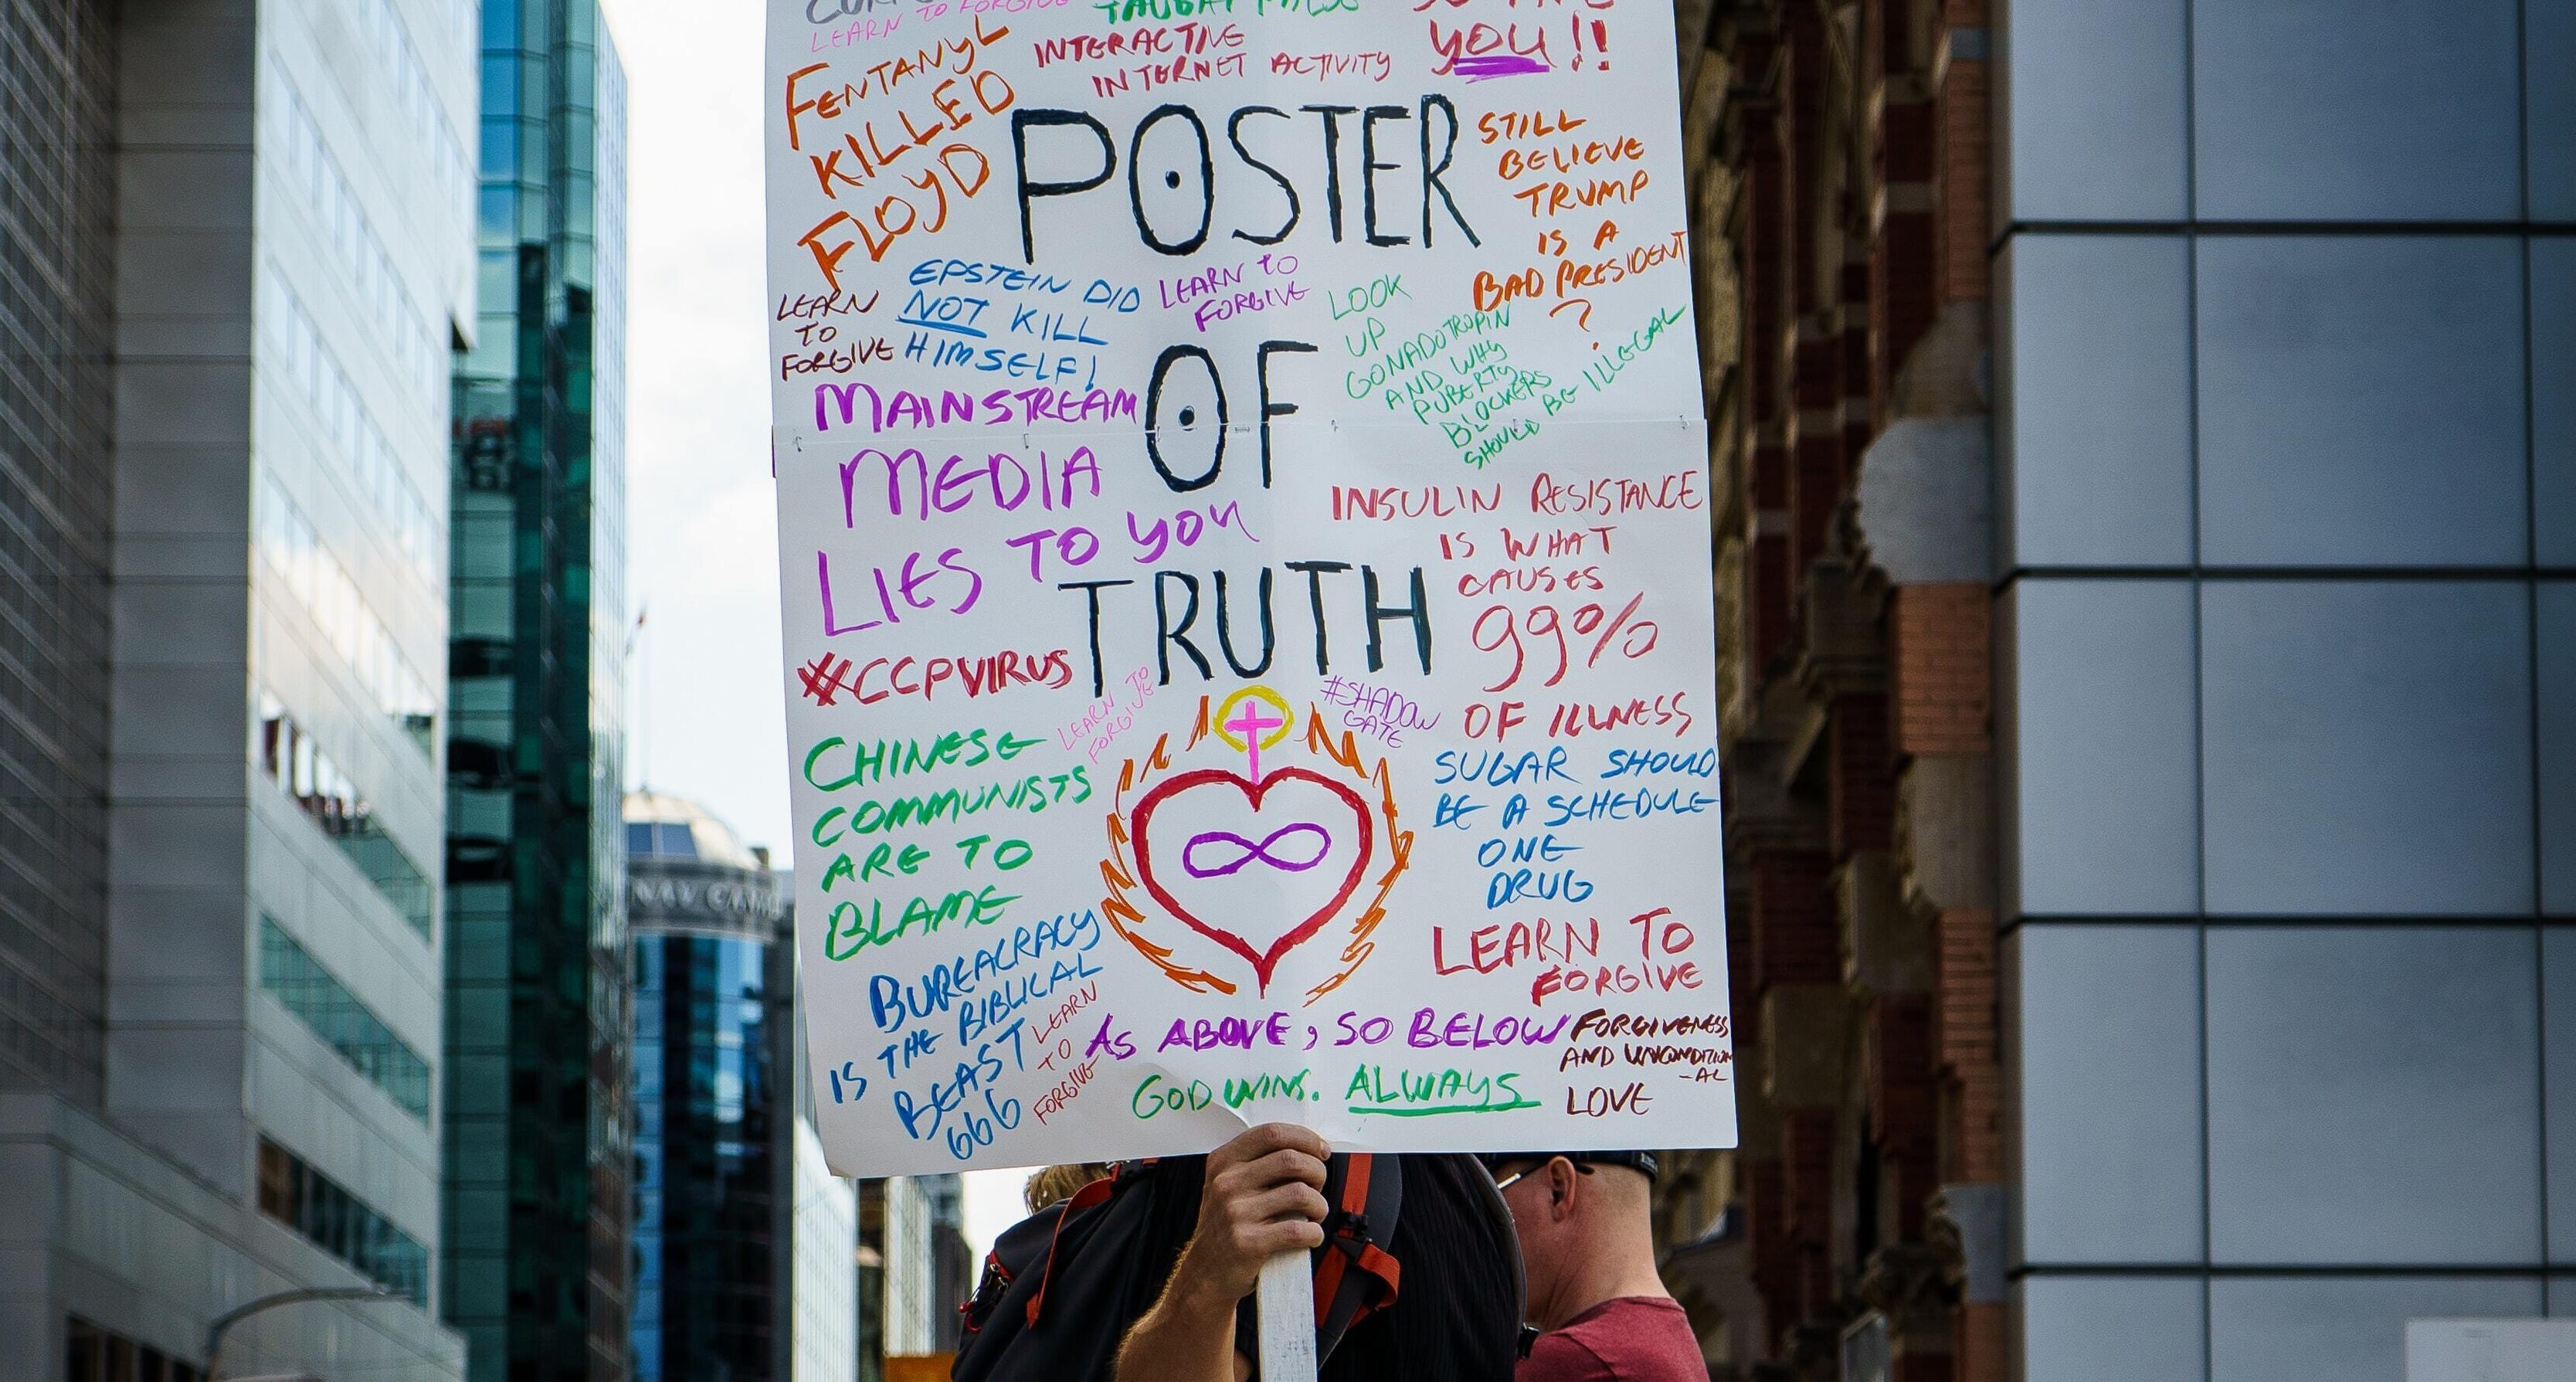 LEARN TO FORGIVE
FENTANYL
KILLED
FLOYD
INTERACTIVE
INTERNET ACTIVITY
YOU!!
POSTER
OF
TRUTH
STILL
BELIEVE
TRUMP
IS A
BAD PRESIDENT
?
EPSTEIN DID
NOT KILL
HIMSELF!
LEARN
TO
FORGIVE
LEARN TO
FORGIVE
LOOK
UP
GONADOTROPIN
AND WHY
PUBERTY
BLOCKERS
SHOULD BE ILLEGAL
MAINSTREAM
MEDIA
LIES TO YOU
INSULIN RESISTANCE
IS WHAT
CAUSES
99%
OF ILLNESS
#CCPVIRUS
LEARN TO
FORGIVE
#SHADOW
GATE
CHINESE
COMMUNISTS
ARE TO
BLAME
SUGAR SHOULD
BE A SCHEDULE
ONE
DRUG
BUREACRACY
IS THE BIBLICAL
BEAST
666
LEARN
TO
FORGIVE
LEARN TO
FORGIVE
AS ABOVE, SO BELOW
GOD WINS. ALWAYS
FORGIVENESS
AND UNCONDITION
-AL
LOVE
NAV CAN